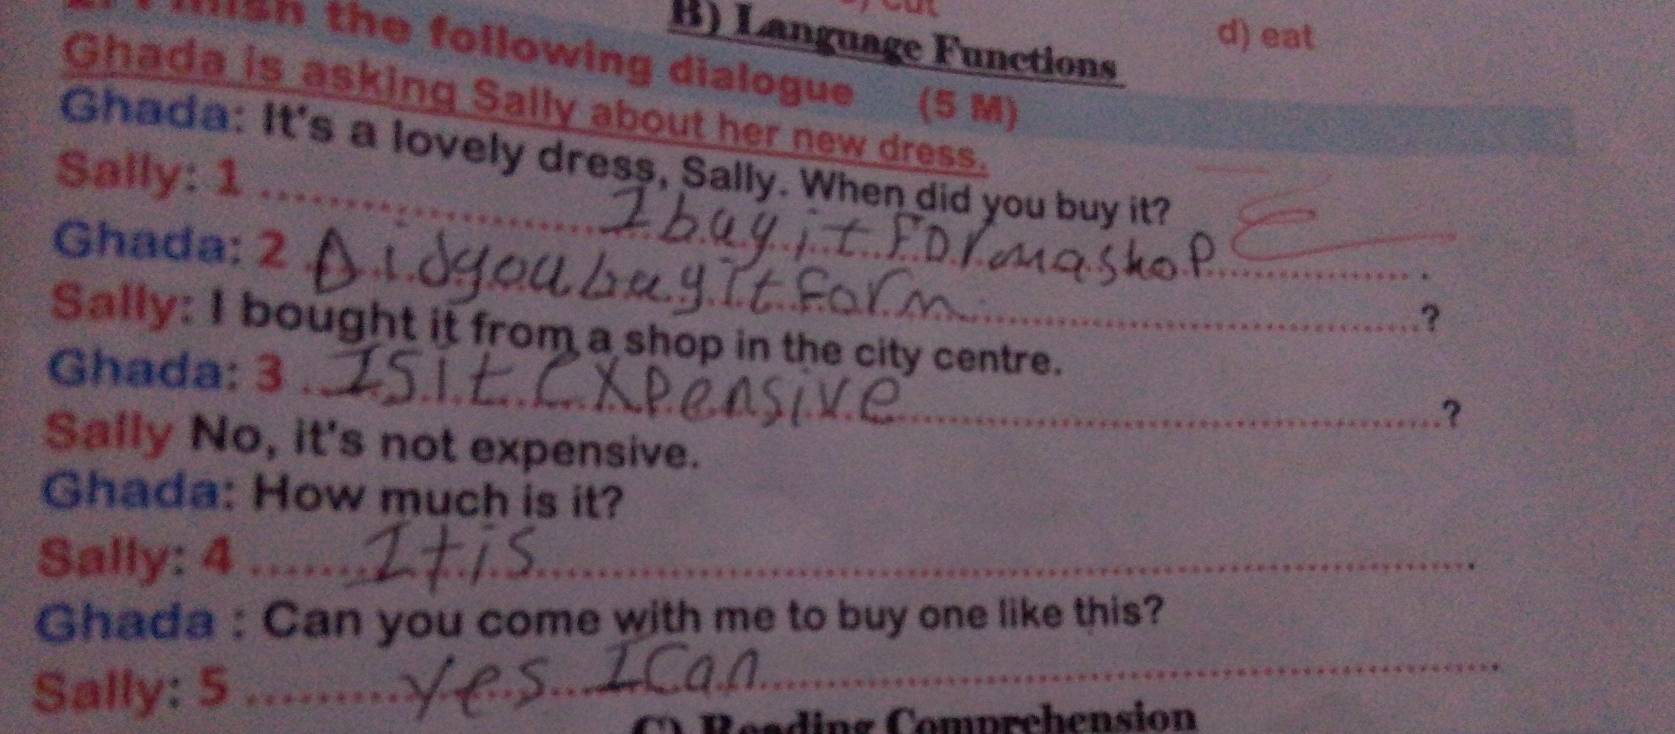 cut
d) eat
B) Language Functions
the following dialogue (5 M)
Ghada is asking Sally about her new dress.
Ghada: It's a lovely dress, Sally. When did you buy it?
Sally: 1 .......... I buy it Form a shop .......... .
Ghada: 2 Did you buy it form ..........?
Sally: I bought it from a shop in the city centre.
Ghada: 3 .. Is it expensive ..........?
Sally No, it's not expensive.
Ghada: How much is it?
Sally: 4 ....... It is ..........
Ghada : Can you come with me to buy one like this?
Sally: 5 .......... yes I can ..........
C) Reading Comprehension